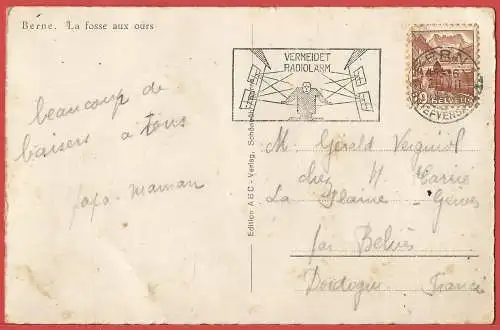 Berne. La fosse aux ours
beaucoup de
baisers a tous
papa. maman
Edition ABC - Verlag,
VERMEIDET
RADIOLÄRM
HELVETIA
M. Gérald
chez M
La Plaine
par Belvès
Dordogne France